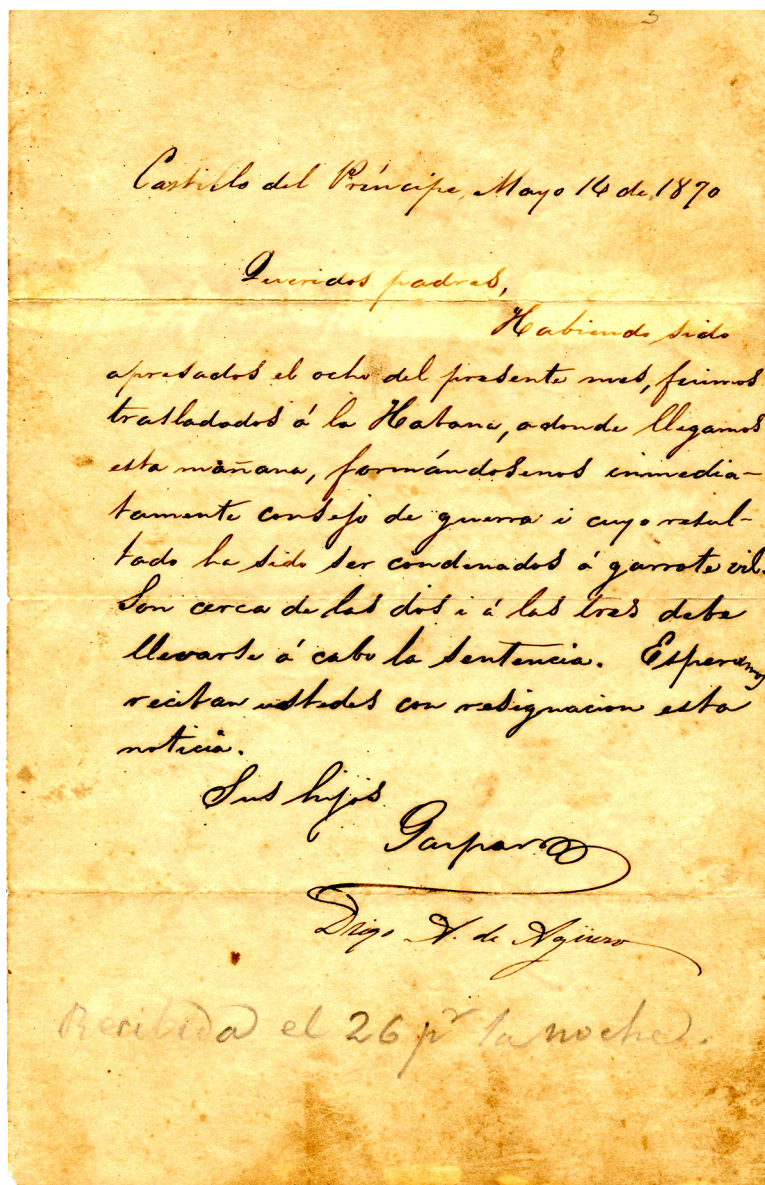 5
Castillo del Príncipe, Mayo 14 de 1870
Queridos padres,
Habiendo sido
apresados el ocho del presente mes, fuimos
trasladados á la Habana, adonde llegamos
esta mañana, formándosenos inmedia-
tamente consejo de guerra i cuyo resul-
tado ha sido ser condenados á garrote vil.
Son cerca de las dos i á las tres debe
llevarse á cabo la sentencia. Esperamos
reciban ustedes con resignacion esta
noticia.
Sus hijos
Gaspar
Diego A. de Agüero
Recibida el 26 pr la noche.